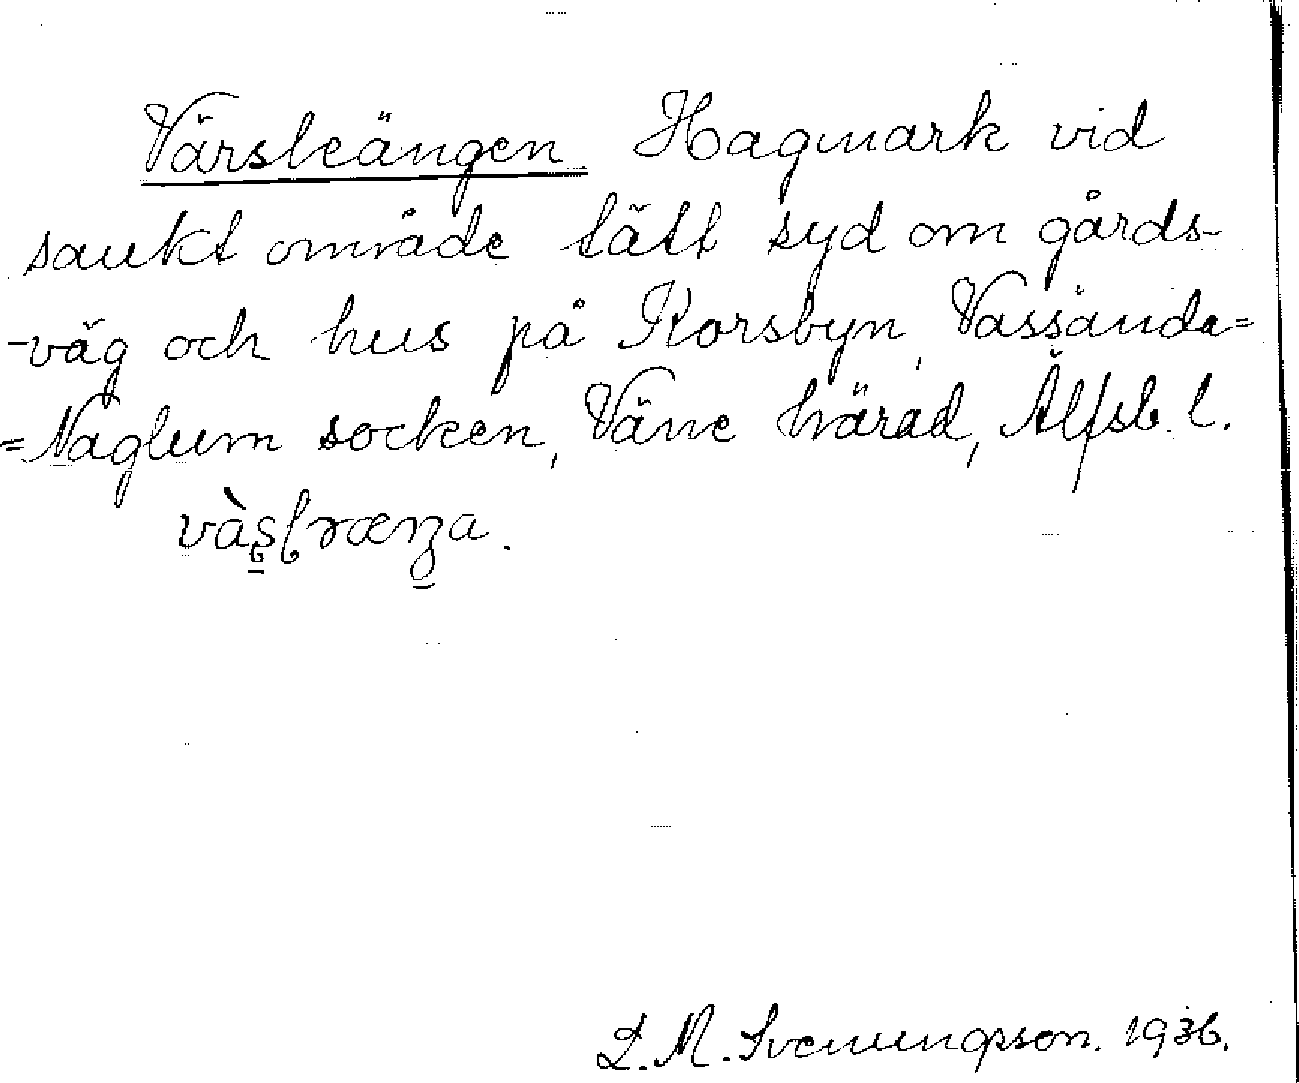 Värsleängen. Hagmark vid
sankt område tätt syd om gårds-
-väg och hus på Korsbyn, Vassända=
=Naglum socken, Väne härad, Älfsb. l.
L. M. Svenungsson. 1936.